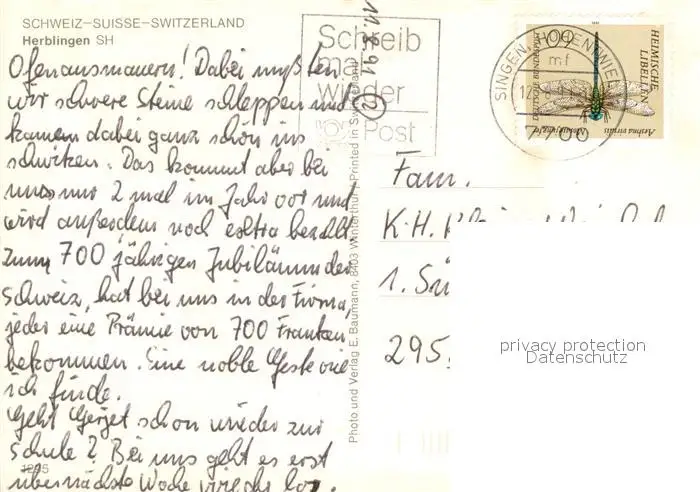 SCHWEIZ-SUISSE-SWITZERLAND
Herblingen SH
Ofenausmauern! Dabei mußten
wir schwere Steine schleppen und
kamen dabei ganz schön ins
schwitzen. Das kommt aber bei
uns nur 2 mal im Jahr vor und
wird außerdem noch extra bezahlt
zum 700 jährigen Jubiläum der
Schweiz, hat bei uns in der Firma,
jeder eine Prämie von 700 Franken
bekommen. Eine noble Geste wie
ich finde.
Geht schon wieder zur
Schule? Bei uns geht es erst
übernächste Woche wieder los.
1295
11.8.91
Photo und Verlag E. Baumann, 8403 Winterthur / Printed in Switzerland
Schreib
mal
wieder
Post
SINGEN HOHENTWIEL
mf
7700
DEUTSCHE BUNDESPOST
100
HEIMISCHE
LIBELLEN
Aeshna viridis
Fam.
K.H.
1. Sü
295
privacy protection
Datenschutz